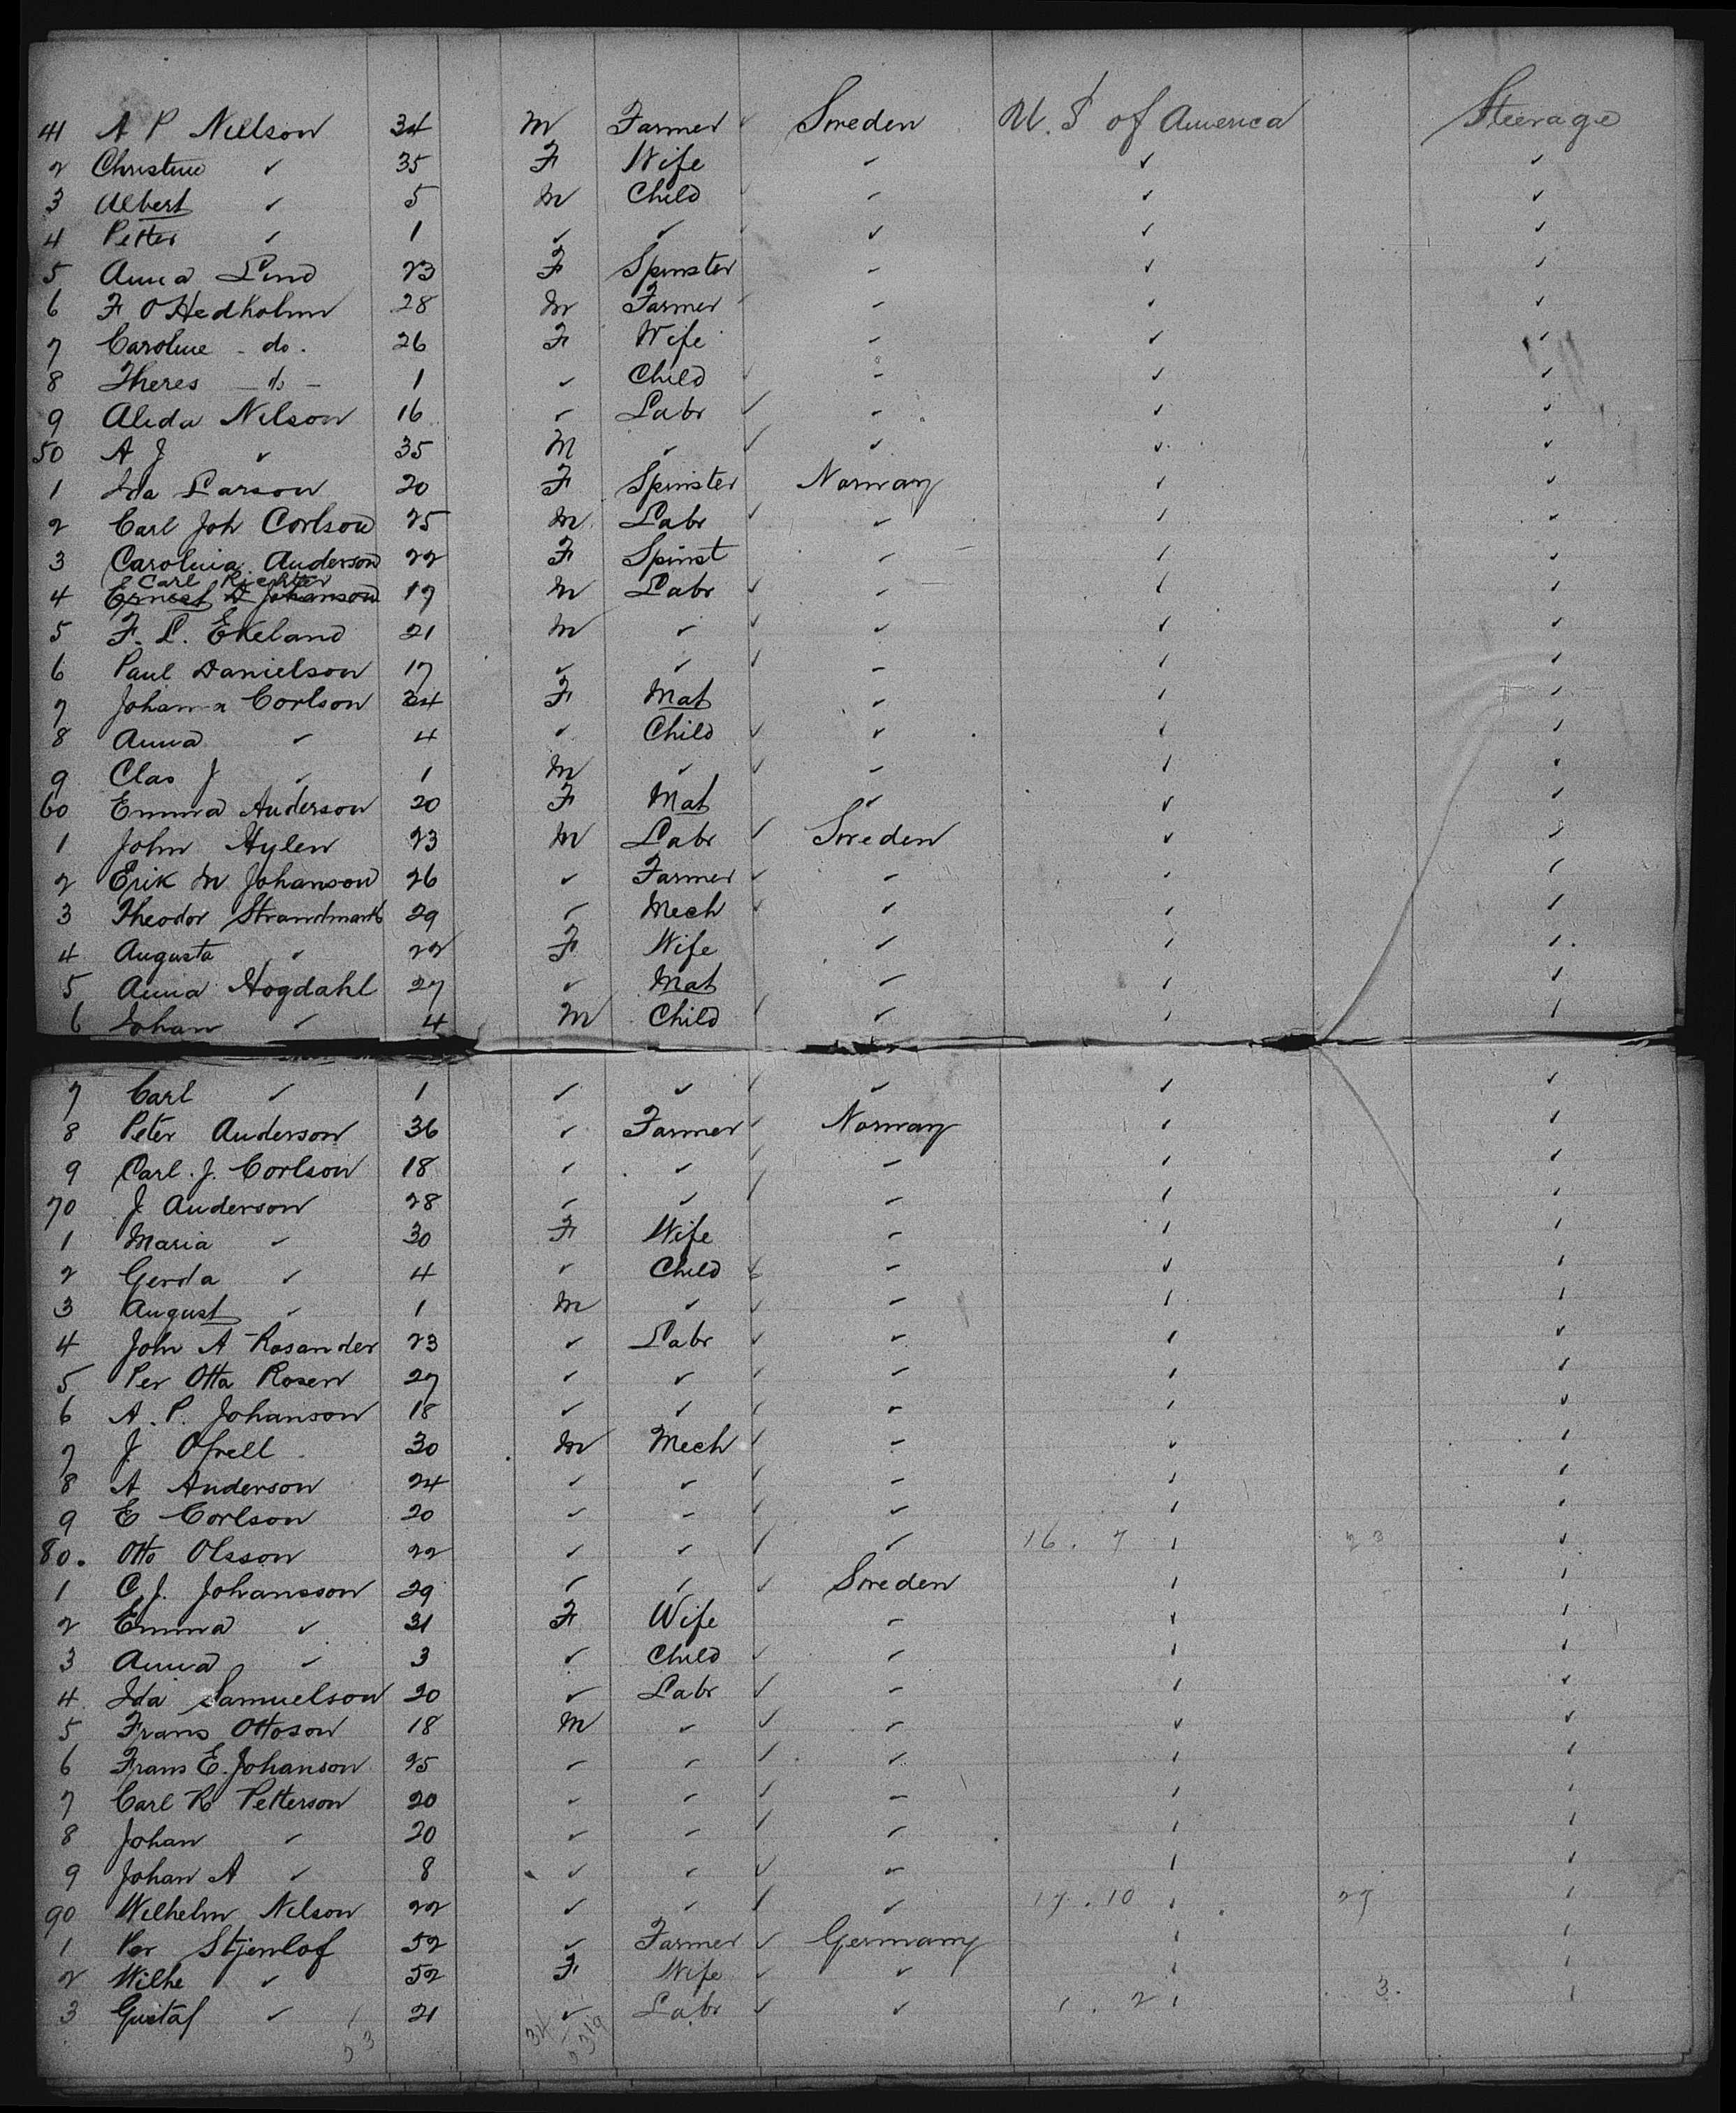 41 A P Nillson 34 M Farmer ✓ Sweden U.S of America Steerage
2 Christine ✓ 35 F Wife - ✓ ✓
3 Albert ✓ 5 M Child - ✓ ✓
4 Petter ✓ 1 ✓ ✓ ✓ ✓ ✓
5 Anna Lind 23 F Spinster - ✓ ✓
6 F O Hedholm 28 M Farmer - ✓ ✓
7 Caroline - do. 26 F Wife - ✓ ✓
8 Theres - do - 1 ✓ Child - ✓ ✓
9 Alida Nilson 16 ✓ Labr ✓ - ✓ ✓
50 A J ✓ 35 M ✓ ✓ ✓ ✓ ✓
1 Ida Larson 20 F Spinster Norway ✓ ✓
2 Carl Joh Corlson 25 M Labr ✓ - ✓ ✓
3 Carolina Anderson 22 F Spinst - ✓ ✓
Carl Richter
4 Ernest D Johanson 19 M Labr ✓ - ✓ ✓
5 F. L. Ekeland 21 M ✓ ✓ ✓ ✓ ✓
6 Paul Danielson 17 ✓ ✓ ✓ - ✓ ✓
7 Johanna Corlson 34 F Mat - ✓ ✓
8 Anna ✓ 4 ✓ Child ✓ ✓ ✓ ✓
9 Clas J ✓ 1 M ✓ ✓ - ✓ ✓
60 Emma Anderson 20 F Mat ✓ ✓ ✓
1 John Hylen 23 M Labr ✓ Sweden ✓ ✓
2 Erik M Johanson 26 ✓ Farmer ✓ - ✓ ✓
3 Theodor Strandmark 29 ✓ Mech ✓ ✓ ✓ ✓
4 Augusta ✓ 22 F Wife ✓ ✓ ✓
5 Anna Hogdahl 27 ✓ Mat - ✓ ✓
6 Johan ✓ 4 M Child ✓ ✓ ✓ ✓
7 Carl ✓ 1 ✓ ✓ ✓ ✓ ✓ ✓
8 Peter Anderson 36 ✓ Farmer ✓ Norway ✓ ✓
9 Carl. J. Corlson 18 ✓ ✓ ✓ - ✓ ✓
70 J Anderson 28 ✓ ✓ ✓ - ✓ ✓
1 Maria ✓ 30 F Wife - ✓ ✓
2 Gerda ✓ 4 ✓ Child ✓ - ✓ ✓
3 August ✓ 1 M ✓ ✓ - ✓ ✓
4 John A Rosander 23 ✓ Labr ✓ - ✓ ✓
5 Per Otta Rosen 27 ✓ ✓ ✓ - ✓ ✓
6 A. P. Johanson 18 ✓ ✓ ✓ - ✓ ✓
7 J. 30 M Mech ✓ - ✓ ✓
8 A Anderson 24 ✓ ✓ ✓ - ✓ ✓
9 E Corlson 20 ✓ - ✓ ✓ ✓ ✓
80. Otto Olsson 22 ✓ ✓ ✓ ✓ 16. 7 ✓ 23 ✓
1 C. J. Johansson 29 ✓ ✓ ✓ Sweden ✓ ✓
2 Emma ✓ 31 F Wife - ✓ ✓
3 Anna ✓ 3 ✓ Child ✓ - ✓ ✓
4 Ida Samuelson 20 ✓ Labr ✓ - ✓ ✓
5 Frans Ottoson 18 M ✓ ✓ - ✓ ✓
6 Frans E. Johanson 25 ✓ ✓ ✓ - ✓ ✓
7 Carl R Petterson 20 ✓ ✓ ✓ - ✓ ✓
8 Johan ✓ 20 ✓ ✓ ✓ - ✓ ✓
9 Johan A ✓ 8 ✓ ✓ ✓ - ✓ ✓
90 Wilhelm Nilson 22 ✓ ✓ ✓ ✓ 17. 10 ✓ 27 ✓
1 Per Stjernlof 52 ✓ Farmer ✓ Germany ✓ ✓
2 Wilhe ✓ 52 F Wife ✓ ✓ ✓ ✓
3 Gustaf ✓ 21 ✓ Labr ✓ ✓ 1. 2 ✓ 3. ✓
53 34 19